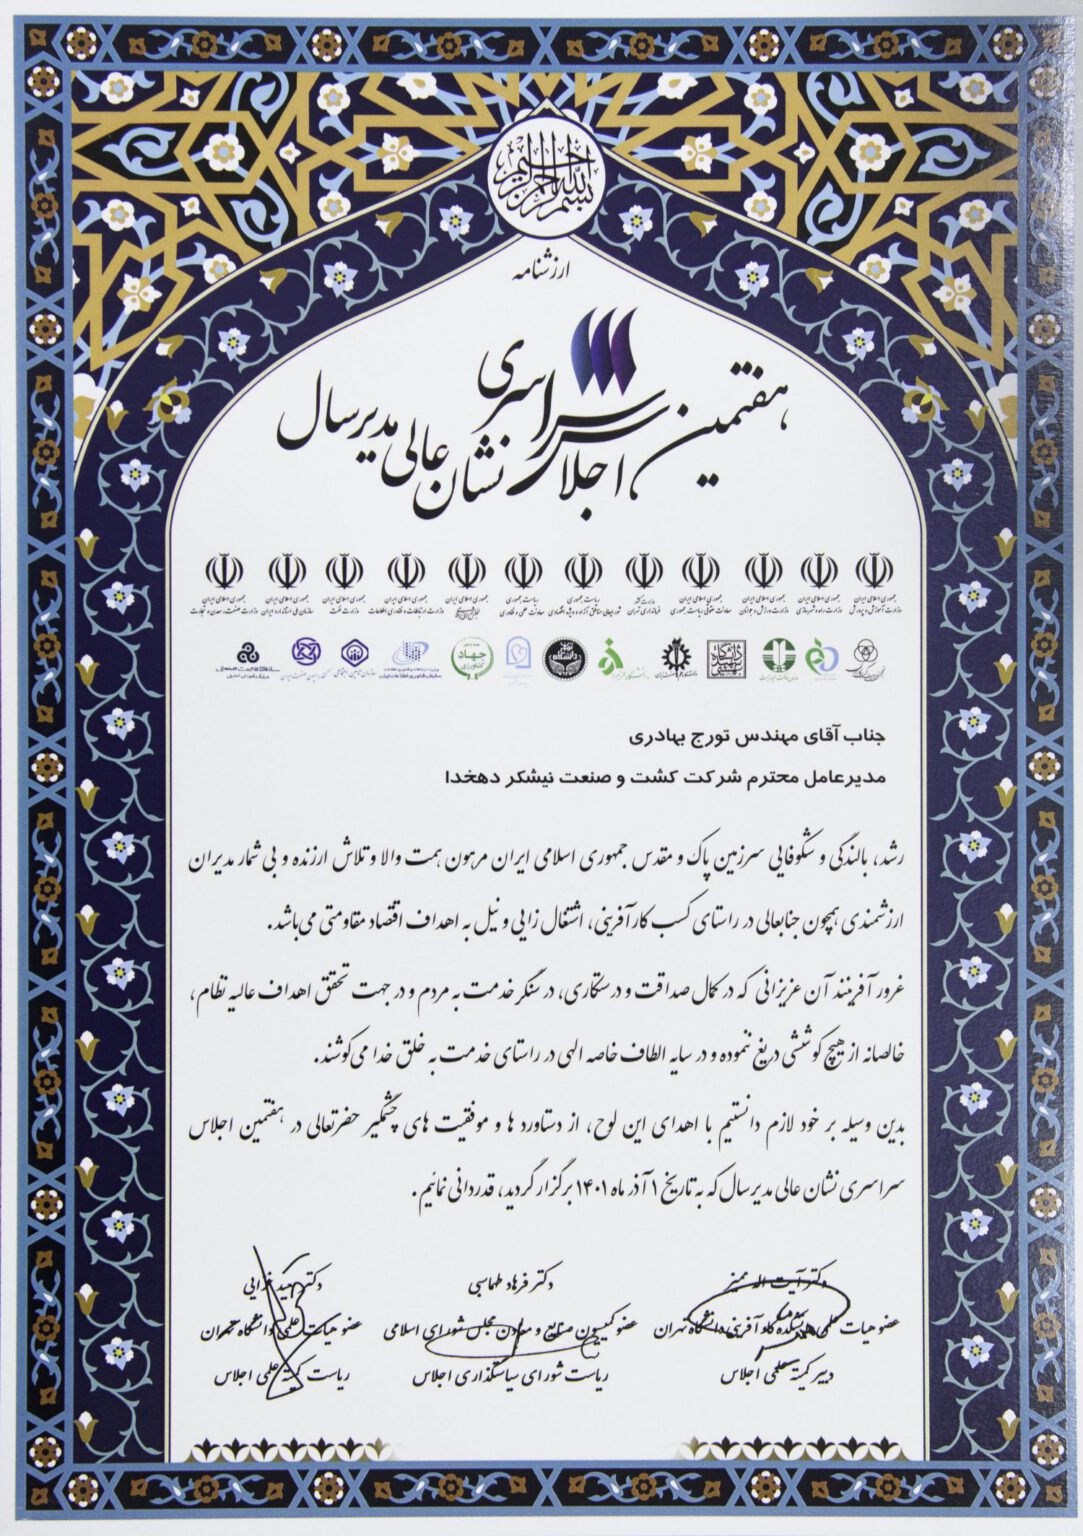 بسم الله الرحمن الرحیم
ارزشنامه
هفتمین اجلاس سراسری
نشان عالی مدیر سال
جمهوری اسلامی ایران
وزارت آموزش و پرورش
جمهوری اسلامی ایران
وزارت راه و شهرسازی
جمهوری اسلامی ایران
وزارت ورزش و جوانان
جمهوری اسلامی ایران
معاونت حقوقی ریاست جمهوری
وزارت کشور
فرمانداری تهران
ریاست جمهوری
شورایعالی مناطق آزاد و ویژه اقتصادی
ریاست جمهوری
معاونت علمی و فناوری
جمهوری اسلامی ایران
جمهوری اسلامی ایران
وزارت ارتباطات و فناوری اطلاعات
جمهوری اسلامی ایران
وزارت نفت
جمهوری اسلامی ایران
سازمان ملی استاندارد ایران
جمهوری اسلامی ایران
وزارت صنعت، معدن و تجارت
جهاد کشاورزی
سازمان تامین اجتماعی
سازمان مدیریت صنعتی
جناب آقای مهندس تورج بهادری
مدیرعامل محترم شرکت کشت و صنعت نیشکر دهخدا
رشد، بالندگی و شکوفایی سرزمین پاک و مقدس جمهوری اسلامی ایران مرهون همت والا و تلاش ارزنده و بی شمار مدیران
ارزشمندی همچون جنابعالی در راستای کسب کارآفرینی، اشتغال زایی و نیل به اهداف اقتصاد مقاومتی می باشد.
غرور آفرینند آن عزیزانی که در کمال صداقت و درستکاری، در سنگر خدمت به مردم و در جهت تحقق اهداف عالیه نظام،
خالصانه از هیچ کوششی دریغ ننموده و در سایه الطاف خاصه الهی در راستای خدمت به خلق خدا می کوشند.
بدین وسیله بر خود لازم دانستیم با اهدای این لوح، از دستاورد ها و موفقیت های چشمگیر حضرتعالی در هفتمین اجلاس
سراسری نشان عالی مدیر سال که به تاریخ ۱ آذر ماه ۱۴۰۱ برگزار گردید، قدردانی نمائیم.
دکتر آیت اله ممیز
عضو هیات علمی دانشکده کارآفرینی دانشگاه تهران
دبیر کمیته علمی اجلاس
دکتر فرهاد طهماسبی
عضو کمیسیون صنایع و معادن مجلس شورای اسلامی
ریاست شورای سیاستگذاری اجلاس
دکتر
عضو هیات علمی دانشگاه تهران
ریاست کمیته علمی اجلاس